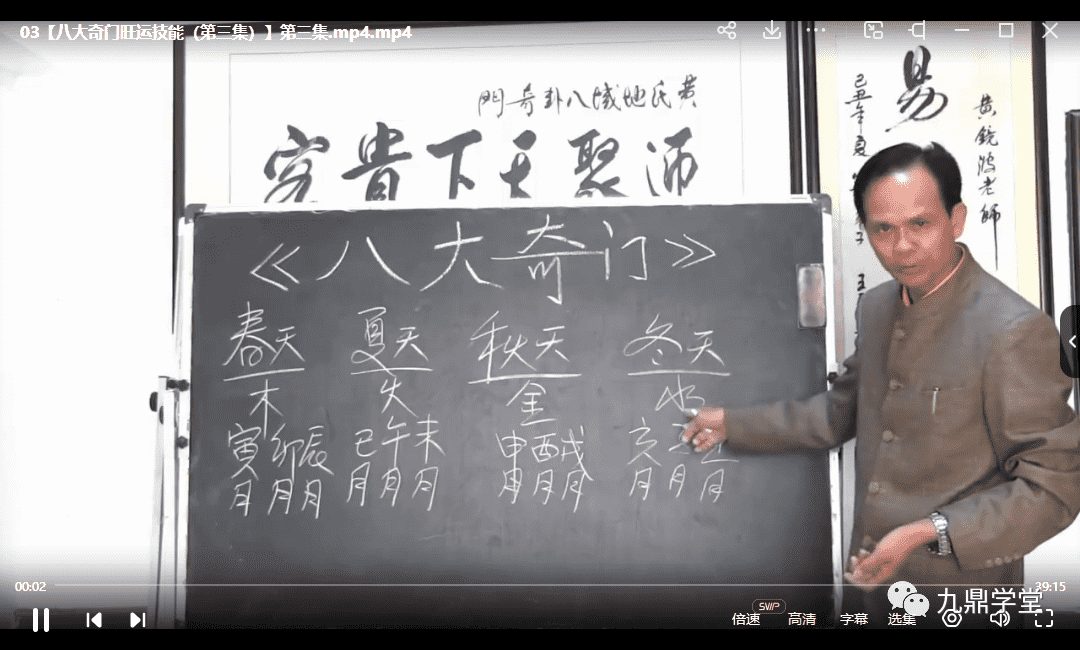 03【八大奇门旺运技能（第三集）】第三集.mp4.mp4
門奇卦八域地氏黄
穷贵下天聚
易
己丑年夏
黄鏡鴻老師
《八大奇门》
春天 夏天 秋天 冬天
木 火 金 水
寅卯辰 巳午未 申酉戌 亥
月月月 月月月 月月月 月月月
00:02
39:15
SVIP
倍速 高清 字幕 选集
九鼎学堂